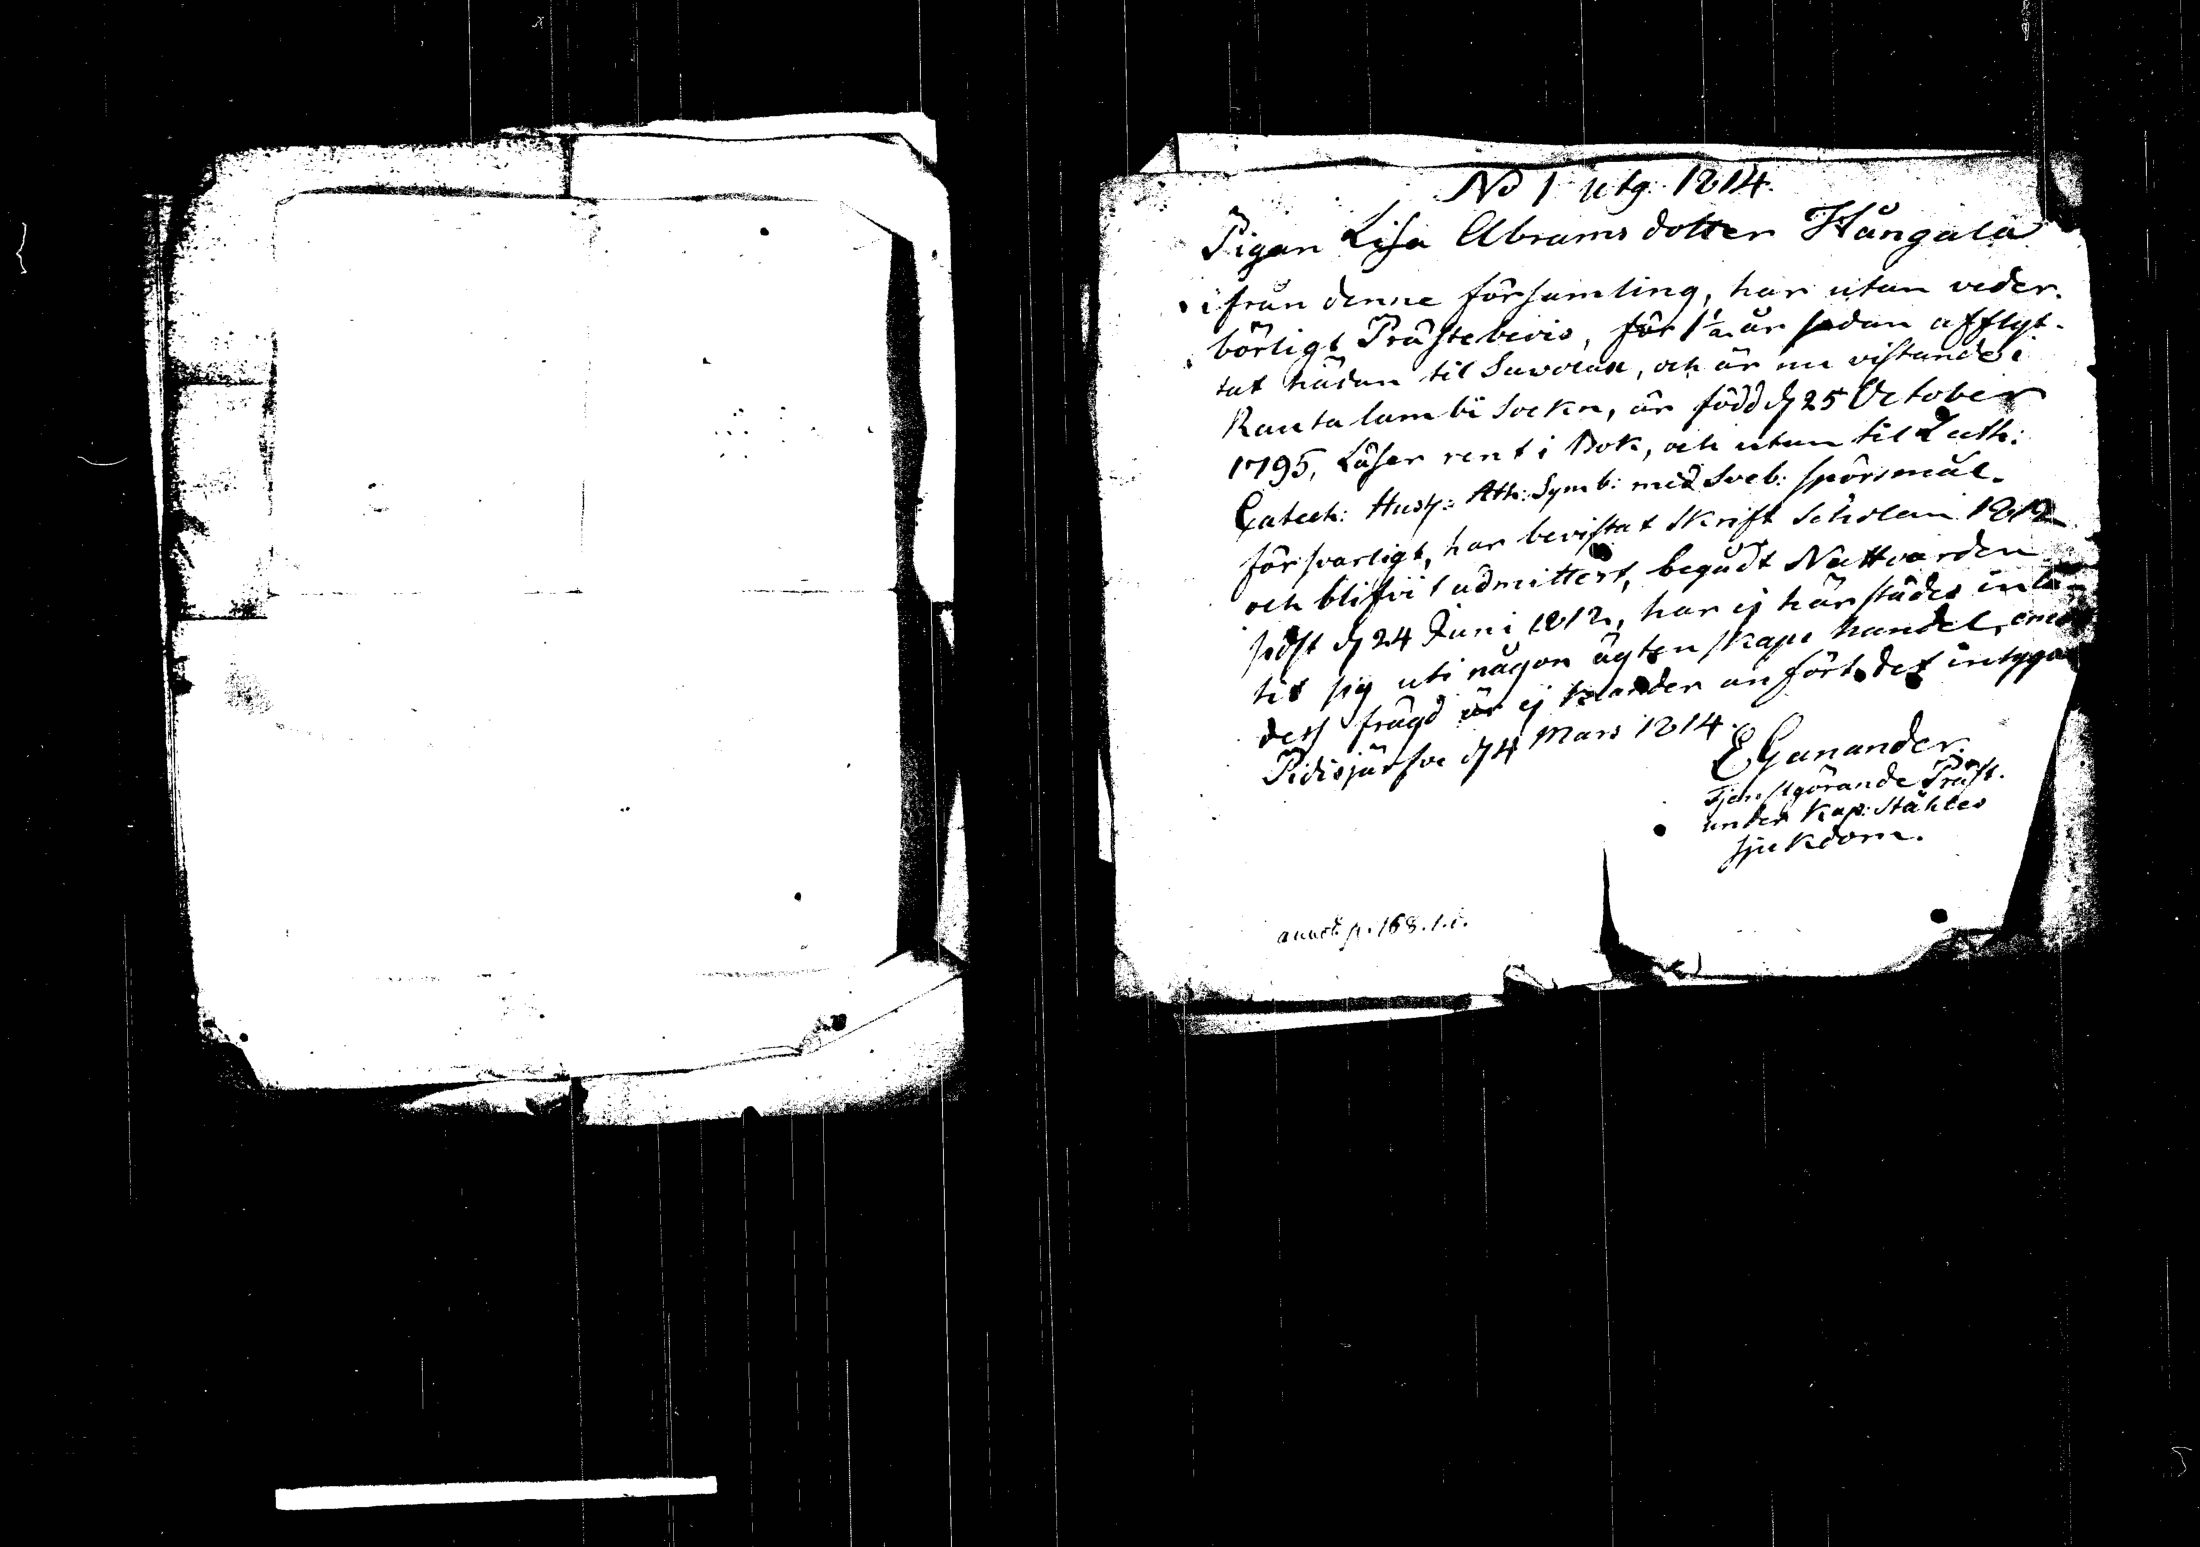 No 1 utg. 1814.
Pigan Lisa Abrams dotter Kångala
ifrån denne församling, har utan veder-
börligt Prästebevis, för 1 1/2 år sedan afflyt-
tat hädan til Savolax, och är nu vistande i
Rautalambi Sockn, är född d 25 October
1795, Läser rent i Bok, och utan til Luth:
Catech: Hust: Ath: Symb: med Sveb: spörsmål.
försvarligt, har bevistat Skrift Scholan 1812
och blifvit admitterd, begådt Nattvarden
sidst d 24 Juni 1812, har ej härstädes inlå-
tit sig uti någon ägtenskaps handel, emot
dess frägd är ej klander anfört, det intygar
Pidisjärfvi d 4 Mars 1814.
E Ganander.
Tjenstgörande Präst.
under Kap: Ståhles
sjukdom.
annot. p. 168. 1. i.